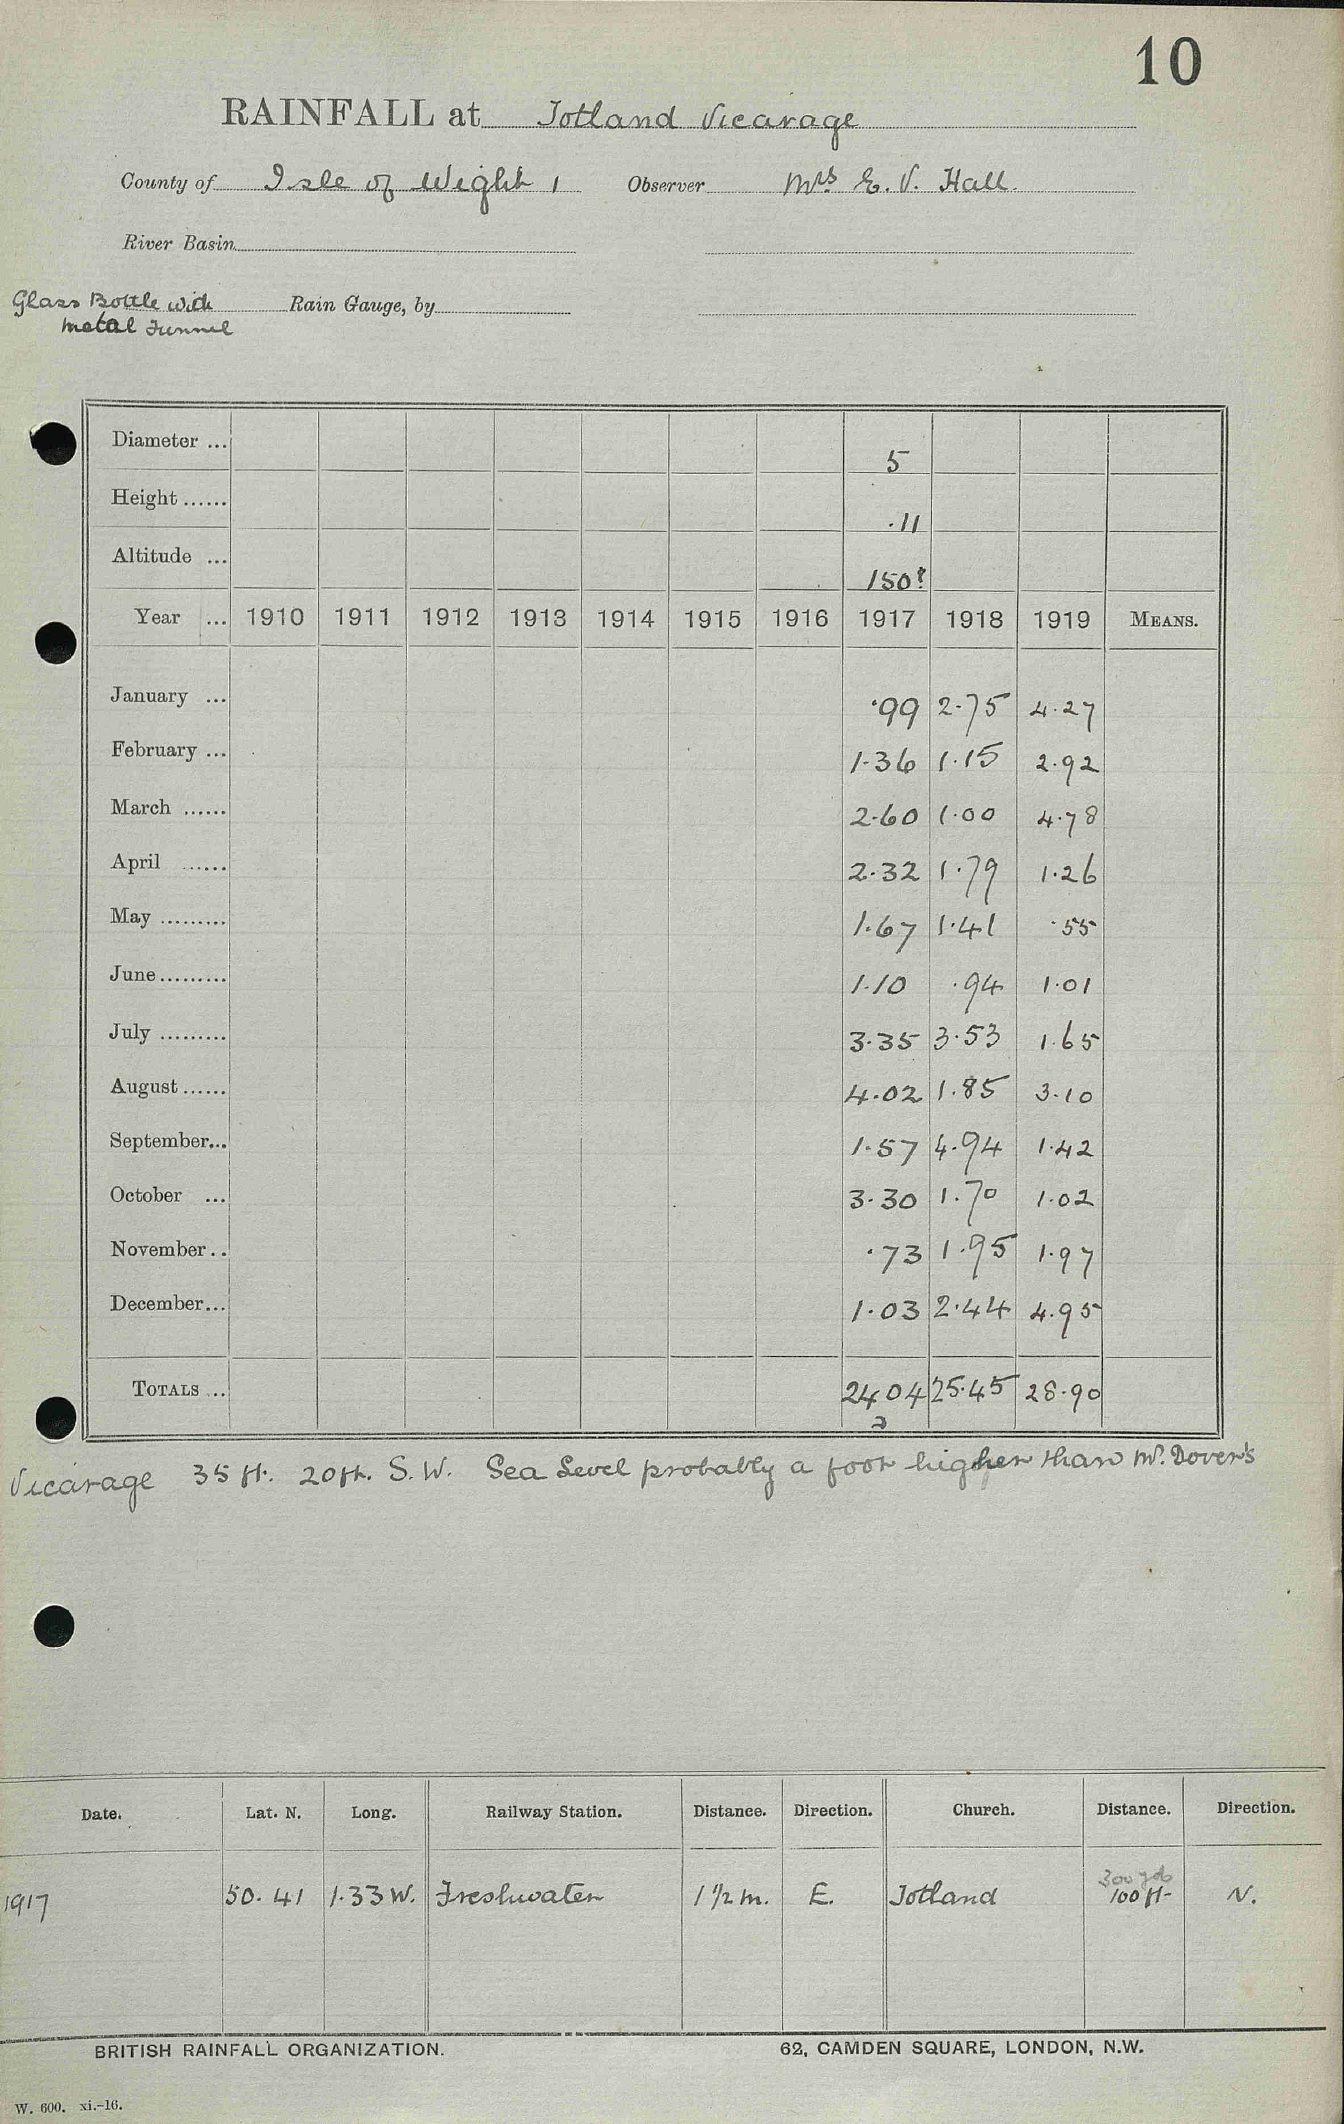 10
RAINFALL at Totland Vicarage
County of Isle of Wight 1 Observer Mrs E. V. Hall.
River Basin
Glass Bottle with Rain Gauge, by
Metal Funnel
Diameter ... 5
Height ...... .11
Altitude ... 150?
Year ... 1910 1911 1912 1913 1914 1915 1916 1917 1918 1919 MEANS.
January ... .99 2.75 4.27
February ... 1.36 1.15 2.92
March ...... 2.60 1.00 4.78
April ...... 2.32 1.79 1.26
May ......... 1.67 1.41 .55
June ......... 1.10 .94 1.01
July ......... 3.35 3.53 1.65
August ...... 4.02 1.85 3.10
September... 1.57 4.94 1.42
October ... 3.30 1.70 1.02
November.. .73 1.95 1.97
December... 1.03 2.44 4.95
TOTALS ... 24 04 25.45 28.90
Vicarage 35 ft. 20ft. S.W. Sea Level probably a foot higher than Mr. Dover's
Date. Lat. N. Long. Railway Station. Distance. Direction. Church. Distance. Direction.
300 yds
1917 50.41 1.33 W. Freshwater 1 1/2 m. E. Totland 100 ft. N.
BRITISH RAINFALL ORGANIZATION. 62, CAMDEN SQUARE, LONDON, N.W.
W. 600. xi.-16.